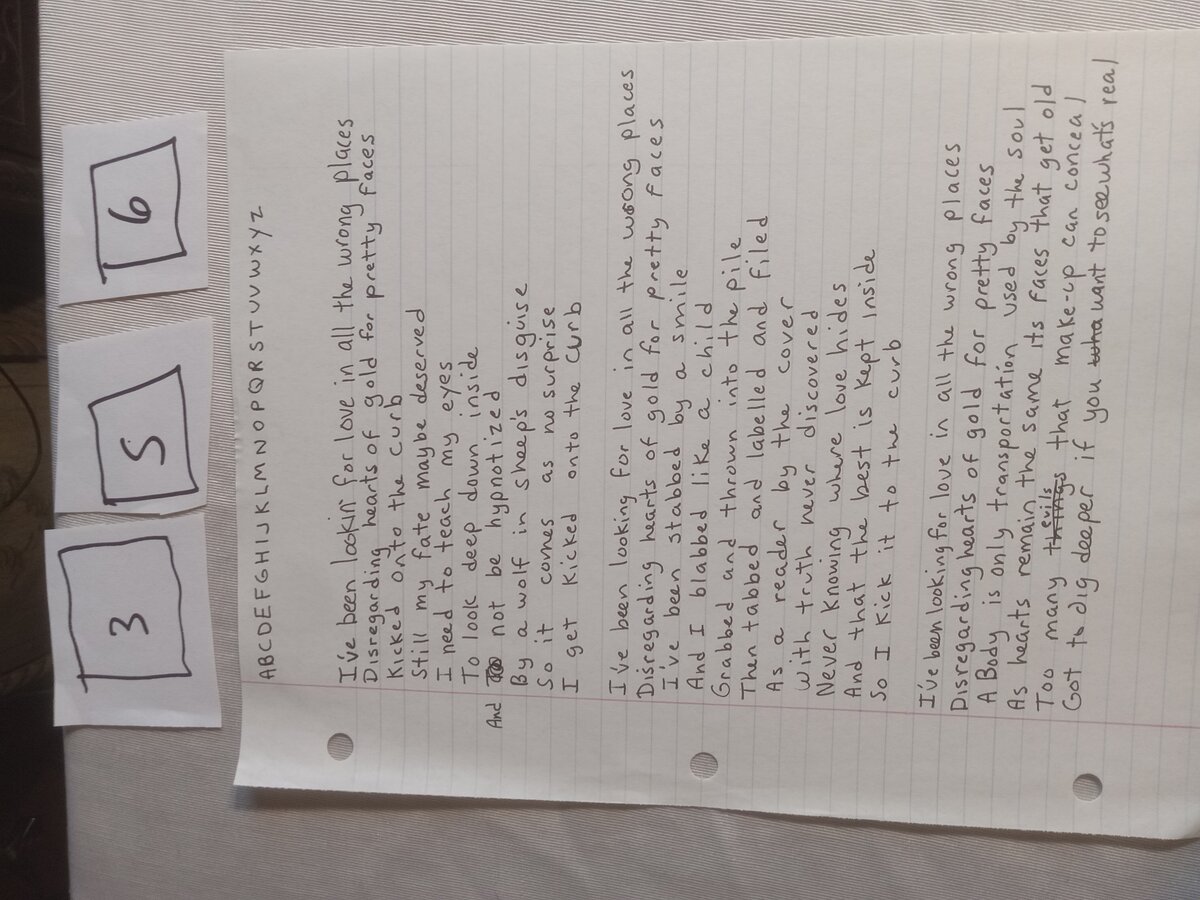 3 5 6
ABCDEFGHIJKLMNOPQRSTUVWXYZ
I've been lookin' for love in all the wrong places
Disregarding hearts of gold for pretty faces
Kicked onto the curb
Still my fate maybe deserved
I need to teach my eyes
To look deep down inside
And not be hypnotized
By a wolf in sheep's disguise
So it comes as no surprise
I get kicked onto the curb
I've been looking for love in all the wrong places
Disregarding hearts of gold for pretty faces
I've been stabbed by a smile
And I blabbed like a child
Grabbed and thrown into the pile
Then tabbed and labelled and filed
As a reader by the cover
With truth never discovered
Never knowing where love hides
And that the best is kept inside
So I kick it to the curb
I've been looking for love in all the wrong places
Disregarding hearts of gold for pretty faces
A Body is only transportation used by the soul
As hearts remain the same its faces that get old
Too many things evils that make-up can conceal
Got to dig deeper if you wha want to see what's real